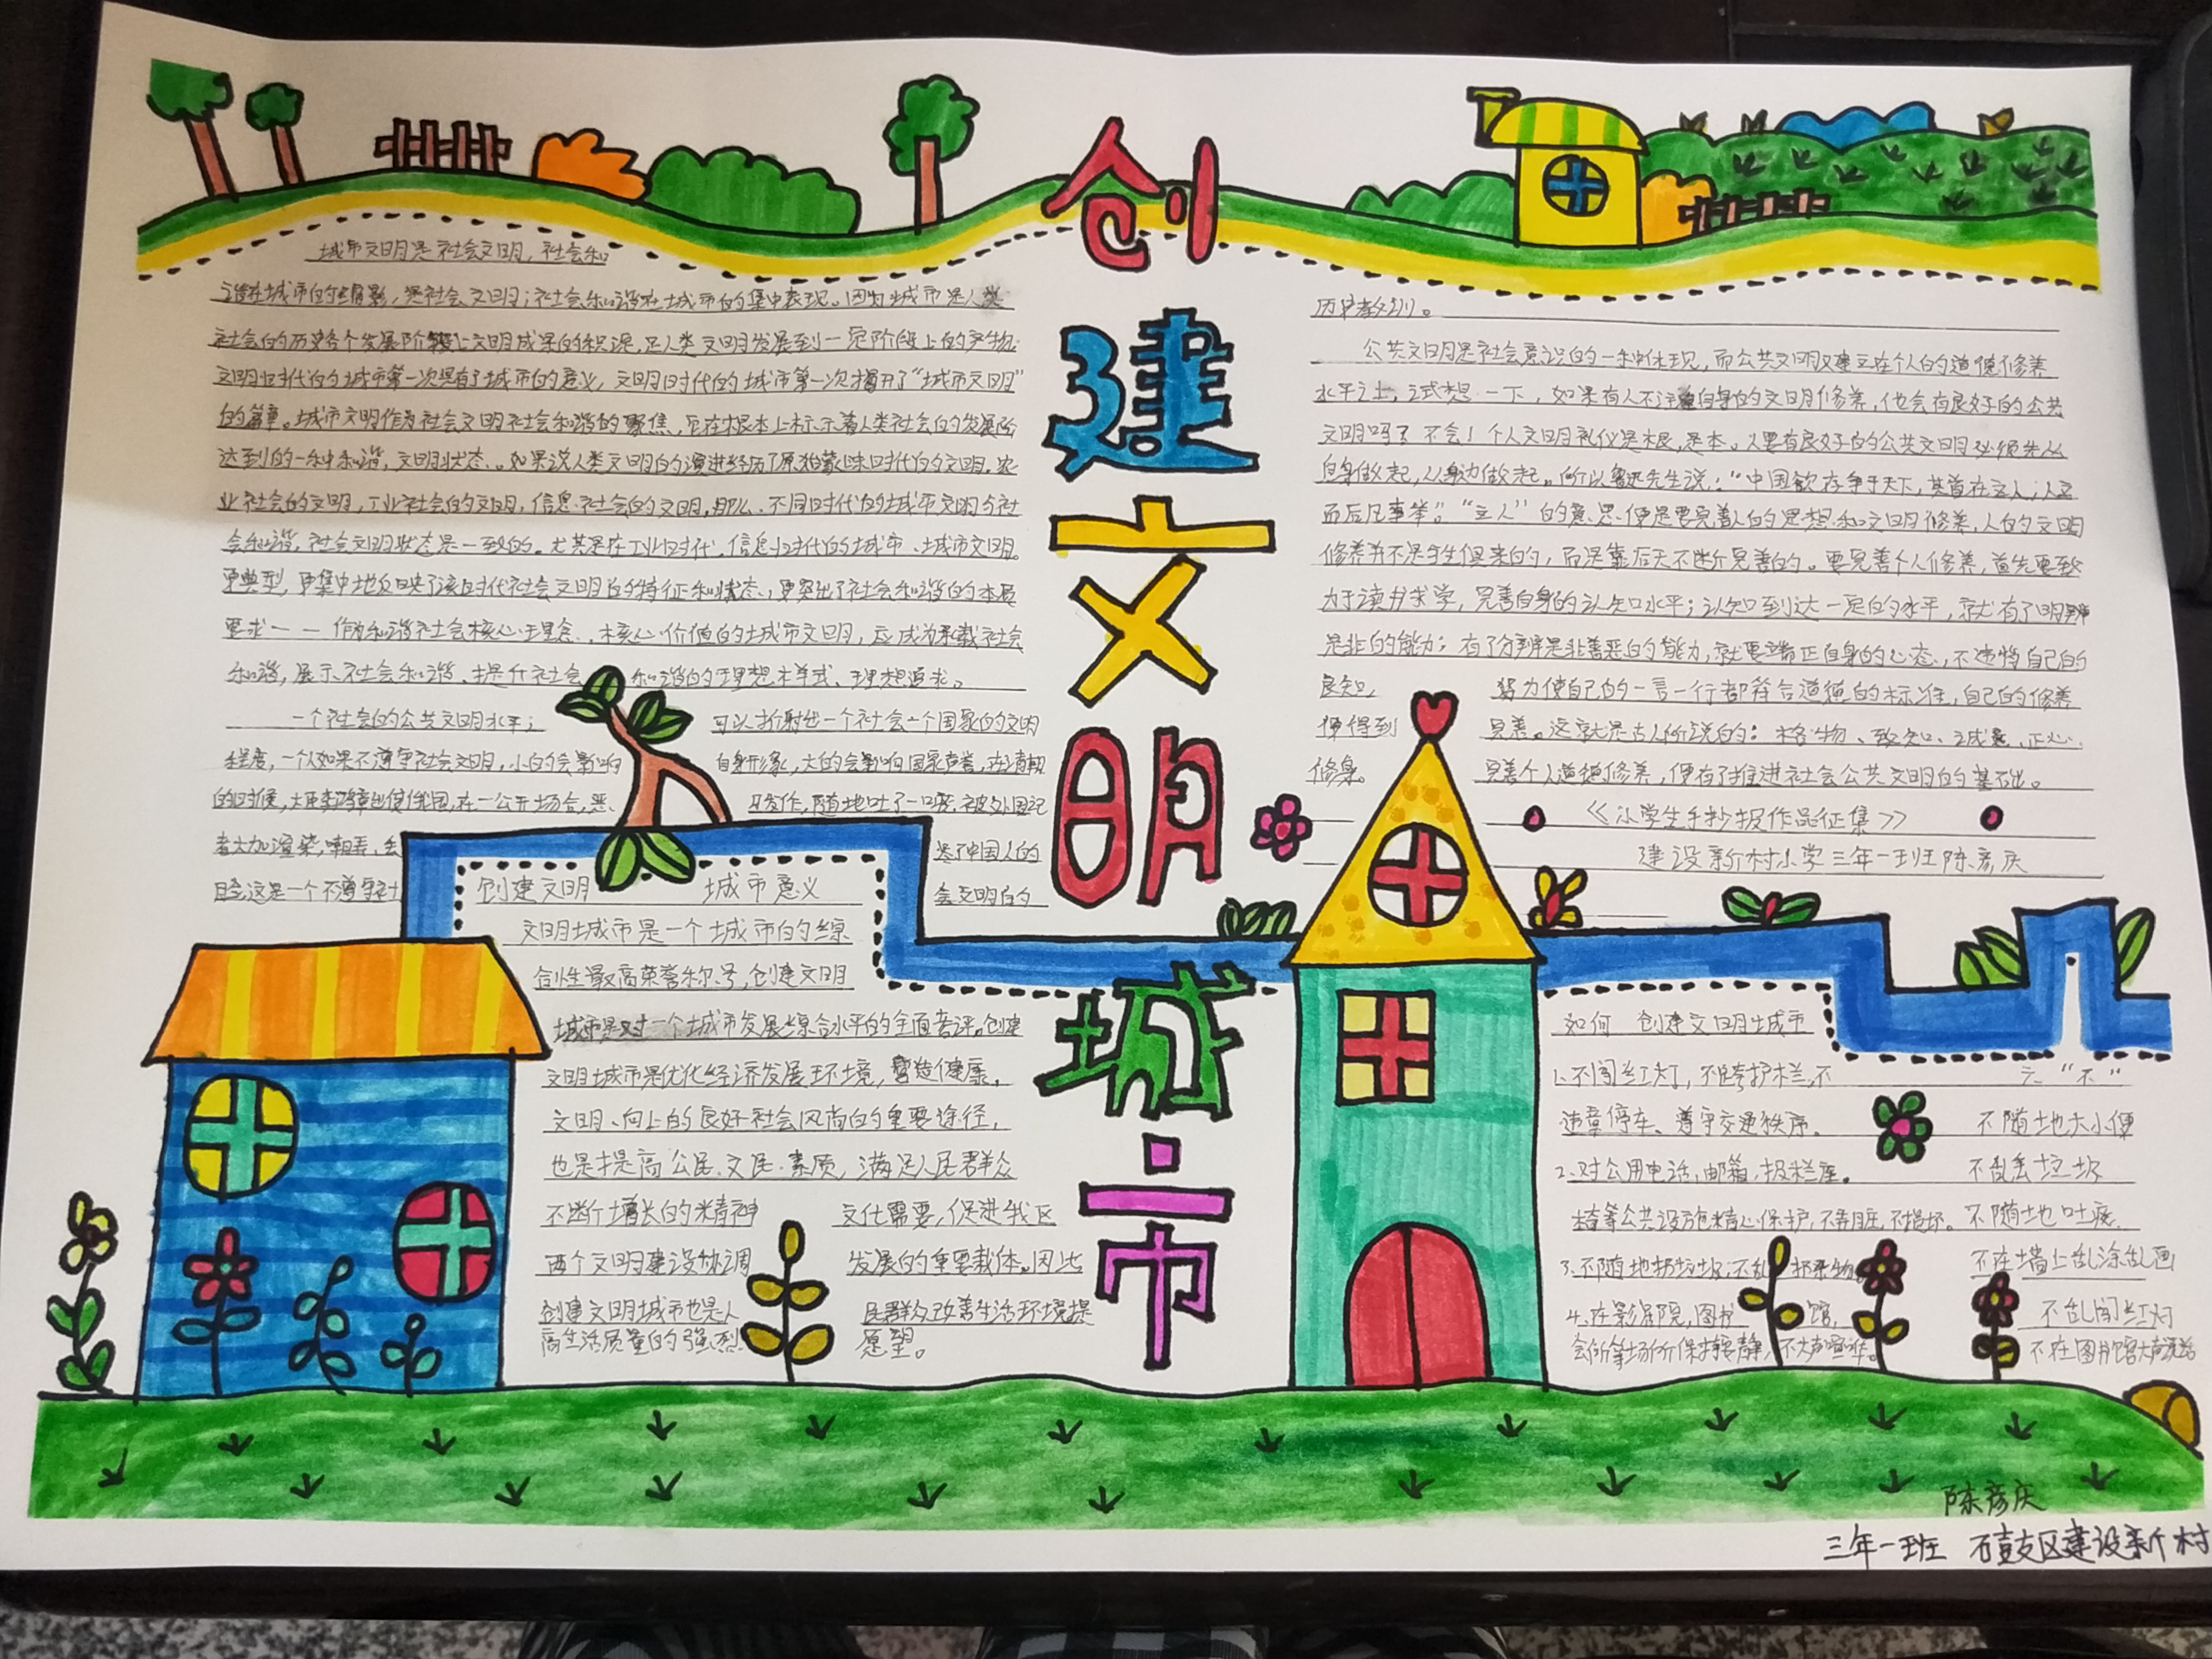 创建文明城市
城市文明是社会文明,社会和
谐在城市的缩影,是社会文明;社会和谐在城市的集中表现。因为城市是人类
社会的历史各个发展阶段上文明成果的积淀,是人类文明发展到一定阶段上的产物
文明时代的城市第一次具有了城市的意义,文明时代的城市第一次揭开了“城市文明”
的篇章。城市文明作为社会文明社会和谐的聚焦,它在根本上标示着人类社会的发展所
达到的一种和谐,文明状态。如果说人类文明的演进经历了原始蒙昧时代的文明,农
业社会的文明,工业社会的文明,信息社会的文明,那么、不同时代的城市文明与社
会和谐,社会文明状态是一致的。尤其是在工业时代、信息时代的城市、城市文明。
更典型,更集中地反映了该时代社会文明的特征和状态,更突出了社会和谐的本质
要求一一作为和谐社会核心理念、核心价值的城市文明,应成为承载社会
和谐,展示社会和谐、提升社会和谐的理想样式、理想追求。
一个社会的公共文明水平;可以折射出一个社会一个国家的文明
程度,一个人如果不遵守社会文明,小的会影响自身形象,大的会影响国家声誉,在清朝
的时候,大臣李鸿章出使俄国,在一公开场合,恶习发作,随地吐了一口痰,被外国记
者大加渲染,嘲弄,丢尽了中国人的
这是一个不遵守社会文明的
历史教训。
公共文明是社会意识的一种体现,而公共文明又建立在个人的道德修养
水平之上,试想一下,如果有人不注重自身的文明修养,他会有良好的公共
文明吗?不会!个人文明礼仪是根,是本。人要有良好的公共文明必须先从
自身做起,从身边做起。所以鲁迅先生说:“中国欲存争于天下,其首在立人,人立
而后凡事举。”“立人”的意思便是要完善人的思想和文明修养,人的文明
修养并不是与生俱来的,而是靠后天不断完善的。要完善个人修养,首先要致
力于读书求学,完善自身的认知水平;认知到达一定的水平,就有了明辨
是非的能力;有了分辨是非善恶的能力,就要端正自身的心态,不违背自己的
良知,努力使自己的一言一行都符合道德的标准,自己的修养
便得到完善。这就是古人所说的:格物、致知、诚意、正心、
修身。完善个人道德修养,便有了推进社会公共文明的基础。
《小学生手抄报作品征集》
建设新村小学三年一班陈彦庆
创建文明城市意义
文明城市是一个城市的综
合性最高荣誉称号,创建文明
城市是对一个城市发展综合水平的全面考评。创建
文明城市是优化经济发展环境,营造健康,
文明、向上的良好社会风尚的重要途径,
也是提高公民文民素质,满足人民群众
不断增长的精神文化需要,促进我区
两个文明建设协调发展的重要载体。因此
创建文明城市也是人民群众改善生活环境提
高生活质量的强烈愿望。
如何创建文明城市
1.不闯红灯,不跨护栏,不
违章停车、遵守交通秩序。
2.对公用电话,邮箱,报栏座。
椅等公共设施精心保护,不弄脏,不损坏。
3.不随地扔垃圾,不乱扔杂物。
4.在影剧院,图书馆,
会所等场所保持安静,不大声喧哗。
六“不”
不随地大小便
不乱丢垃圾
不随地吐痰
不在墙上乱涂乱画
不乱闯红灯
不在图书馆大声说话
陈彦庆
三年一班 石鼓区建设新村